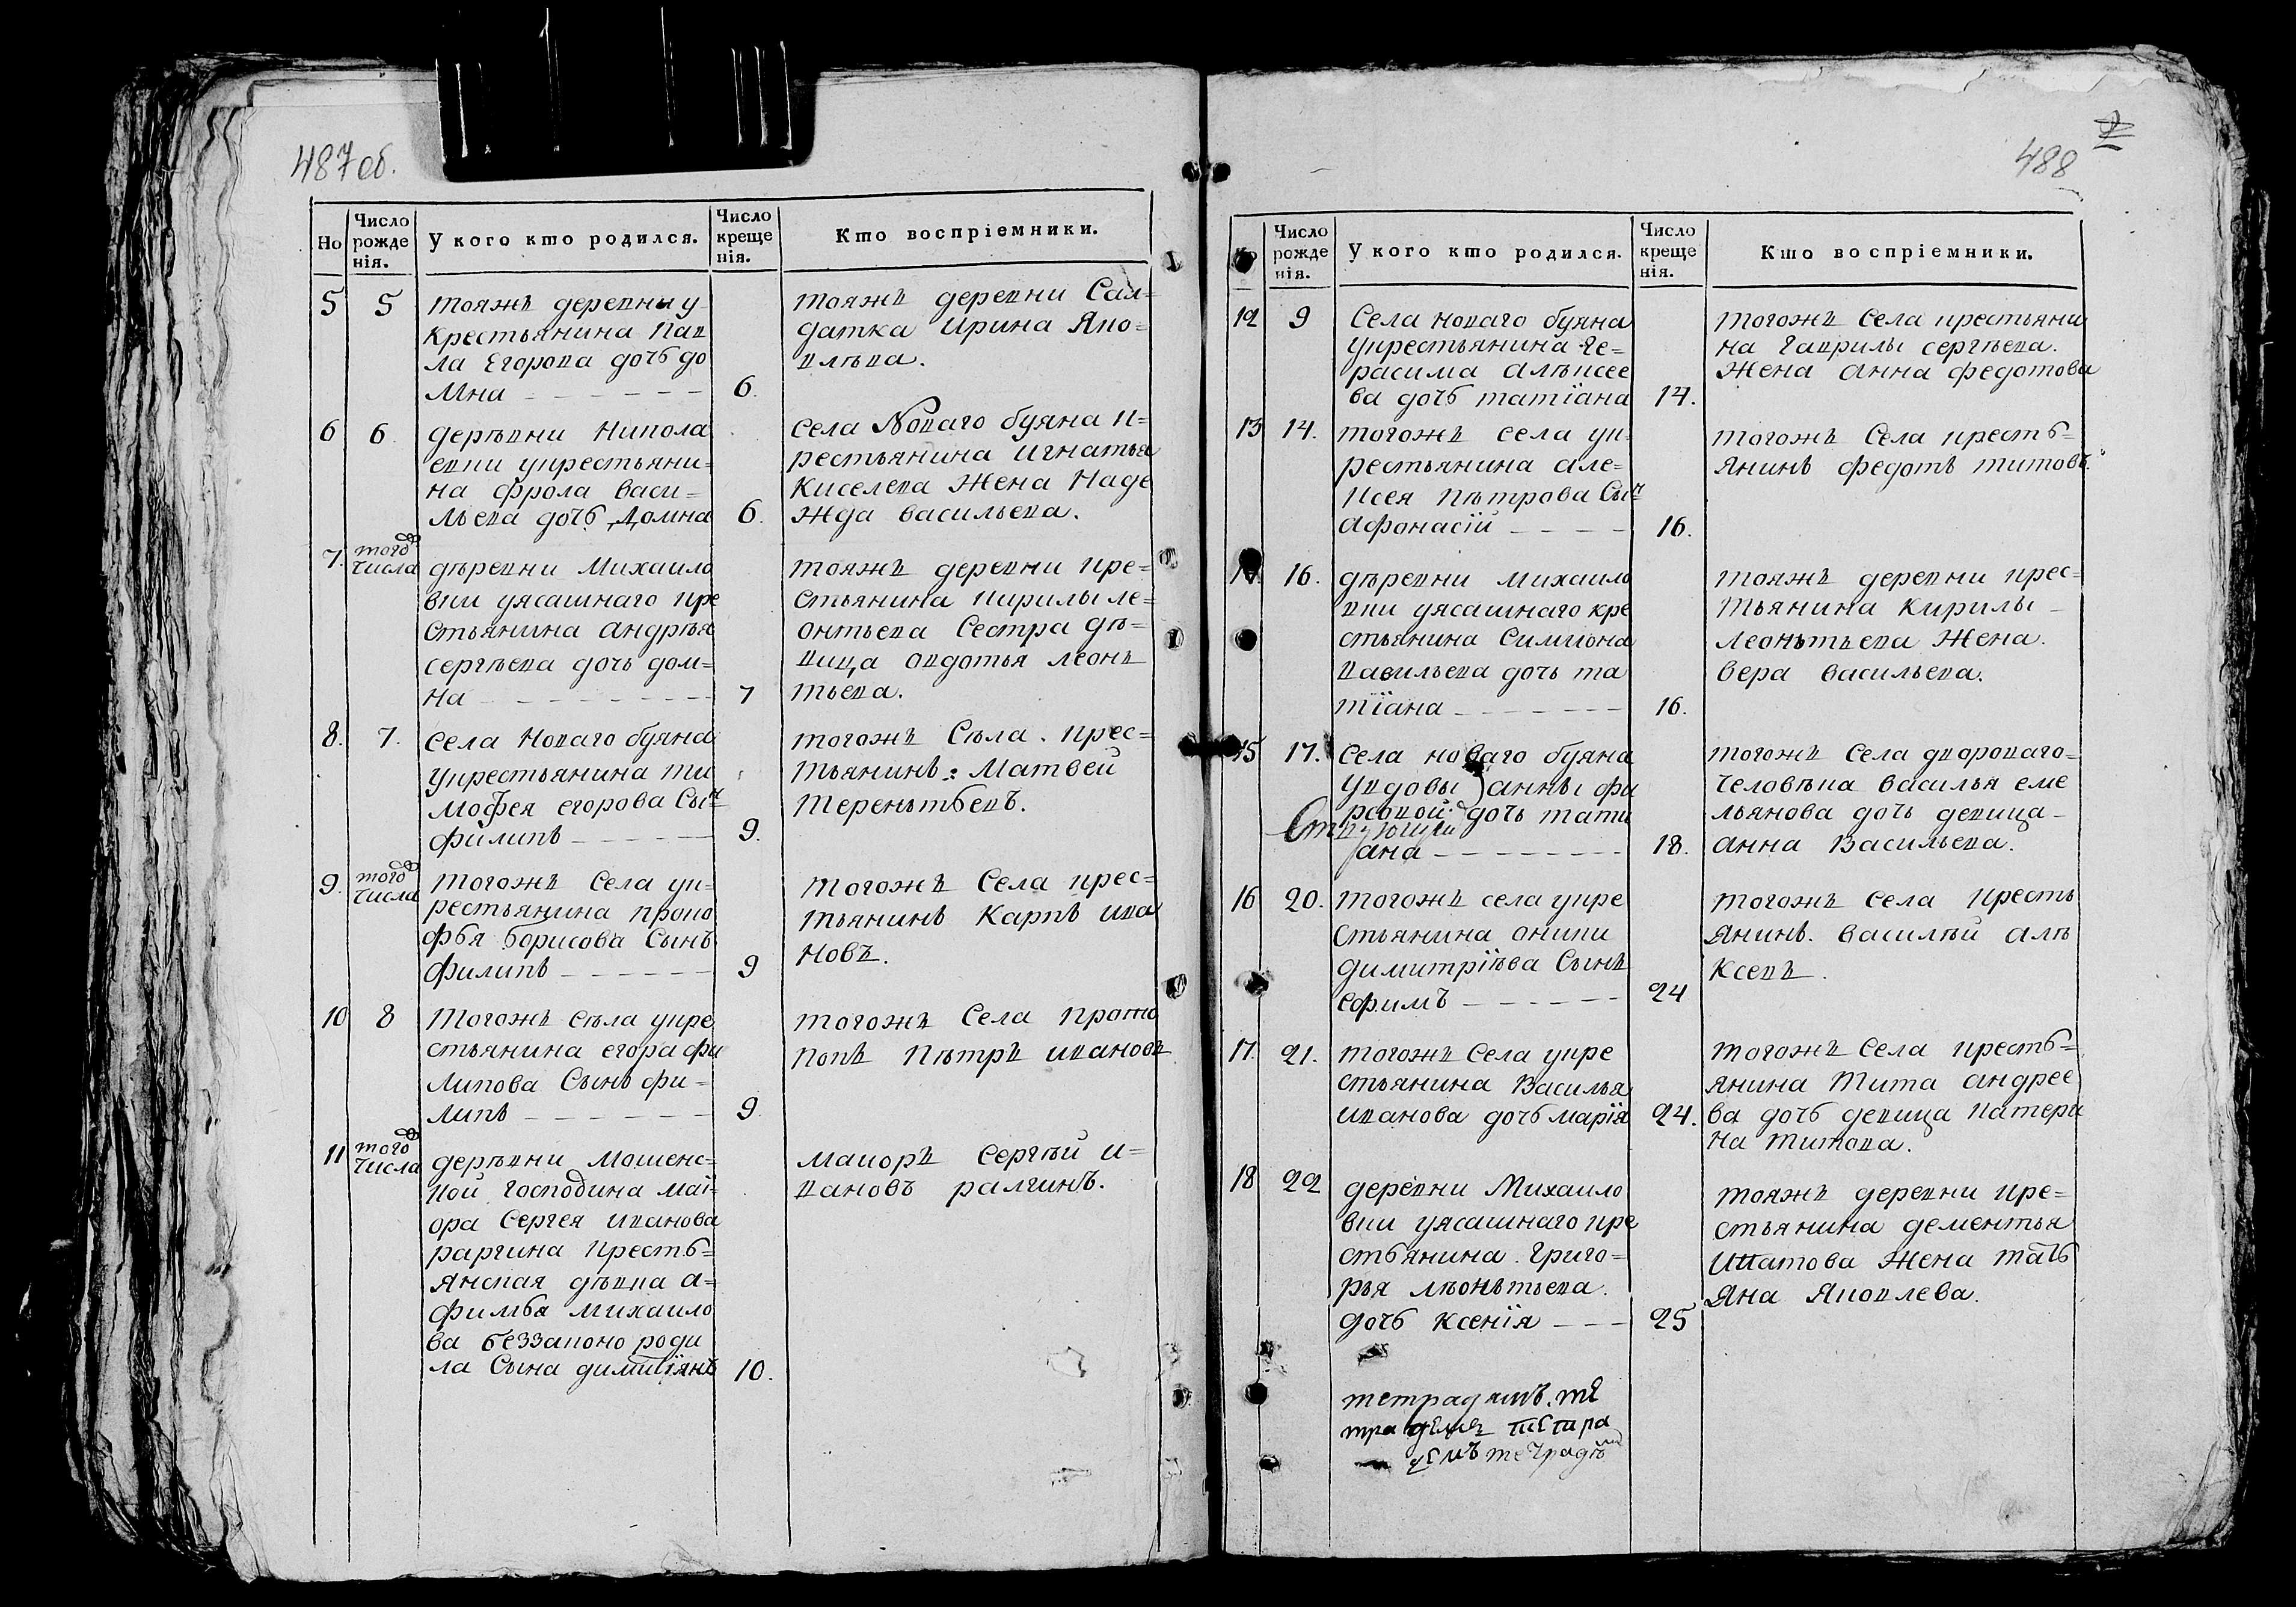 487 об.
Но
Число рожде нія.
У кого кто родился.
Число креще нія.
Кто воспріемники.
5 5 тояжъ деревни у
крестьянина Пав
ла Егорова дочь до
мна 6.
тояжъ деревни Сал=
датка Ирина Яко=
влѣва.
6 6. дерѣвни Никола
евки укрестьяни=
на фрола васи=
льева дочь Домна 6.
села Новаго буяна к=
рестьянина игнатья
Киселева жена Наде
жда васильева.
7. того числа дѣревни Михаило
вки уясашнаго кре
стьянина андрѣя
сергѣева дочь дом=
на 7
тояжъ деревни кре=
стьянина кирилы ле=
онтьева сестра дѣ=
вица овдотья леонъ
тьева.
8. 7. села Новаго буяна
укрестьянина ти
мофея егорова сынъ
филипъ 9.
тогожъ Сѣла. крес=
тьянинъ: Матвей
Тереньтьевъ.
9. того числа тогожъ села ук=
рестьянина проко
фья борисова сынъ
филипъ 9
тогожъ села крес=
тьянинъ Карпъ ива
новъ.
10 8 тогожъ сѣла укре
стьянина егора фи
липова сынъ фи=
липъ 9.
тогожъ села прото
попъ Пѣтръ ивановъ
11 того числа дерѣвни Мошенс=
кой господина маі=
ора Сергея иванова
раргина кресть=
янская дѣвка а=
фимья михаило
ва беззаконо роди
ла сына димитіянъ 10.
маиоръ сергѣй и=
вановъ ралгинъ.
488
Число рожде нія.
У кого кто родился.
Число креще нія.
Кто воспріемники.
12 9 села новаго буяна
укрестьянина ге=
расима алѣксее
ва дочь татіана 14.
тогожъ села крестьяни
на гаврилы сергѣева.
жена анна федотова
13 14. тогожъ села ук=
рестьянина але=
ксея пѣтрова сынъ
афонасій 16.
тогожъ села кресть=
янинъ федотъ титовъ.
14. 16. дѣревни михаило
вки уясашнаго кре
стьянина симиона
васильева дочь та
тіана 16.
тояжъ деревни крес=
тьянина кирилы
леоньтьева жена.
вера васильева.
15 17. села новаго буяна
увдовы анны фи
рсовой дочь тати
яна 18.
тогожъ села двороваго=
человѣка василья еме
льянова дочь девица
анна Васильева.
16 20. тогожъ села укре
стьянина аники
димитріева сынъ
ефимъ 24
тогожъ села кресть
янинъ. василѣй алѣ
ксевъ.
17. 21. тогожъ села укре
стьянина Василья
иванова дочь марія 24.
тогожъ села кресть=
янина Тита андрее
ва дочь девица катери
на титова.
18 22 деревни Михаило
вки уясашнаго кре
стьянина григо=
рья лѣоньтьева.
дочь ксенія 25
тояжъ деревни кре=
стьянина дементья
ипатова жена тать
яна яковлева.
тетрадямъ. те
тра демъ тетра
демъ тетрадь